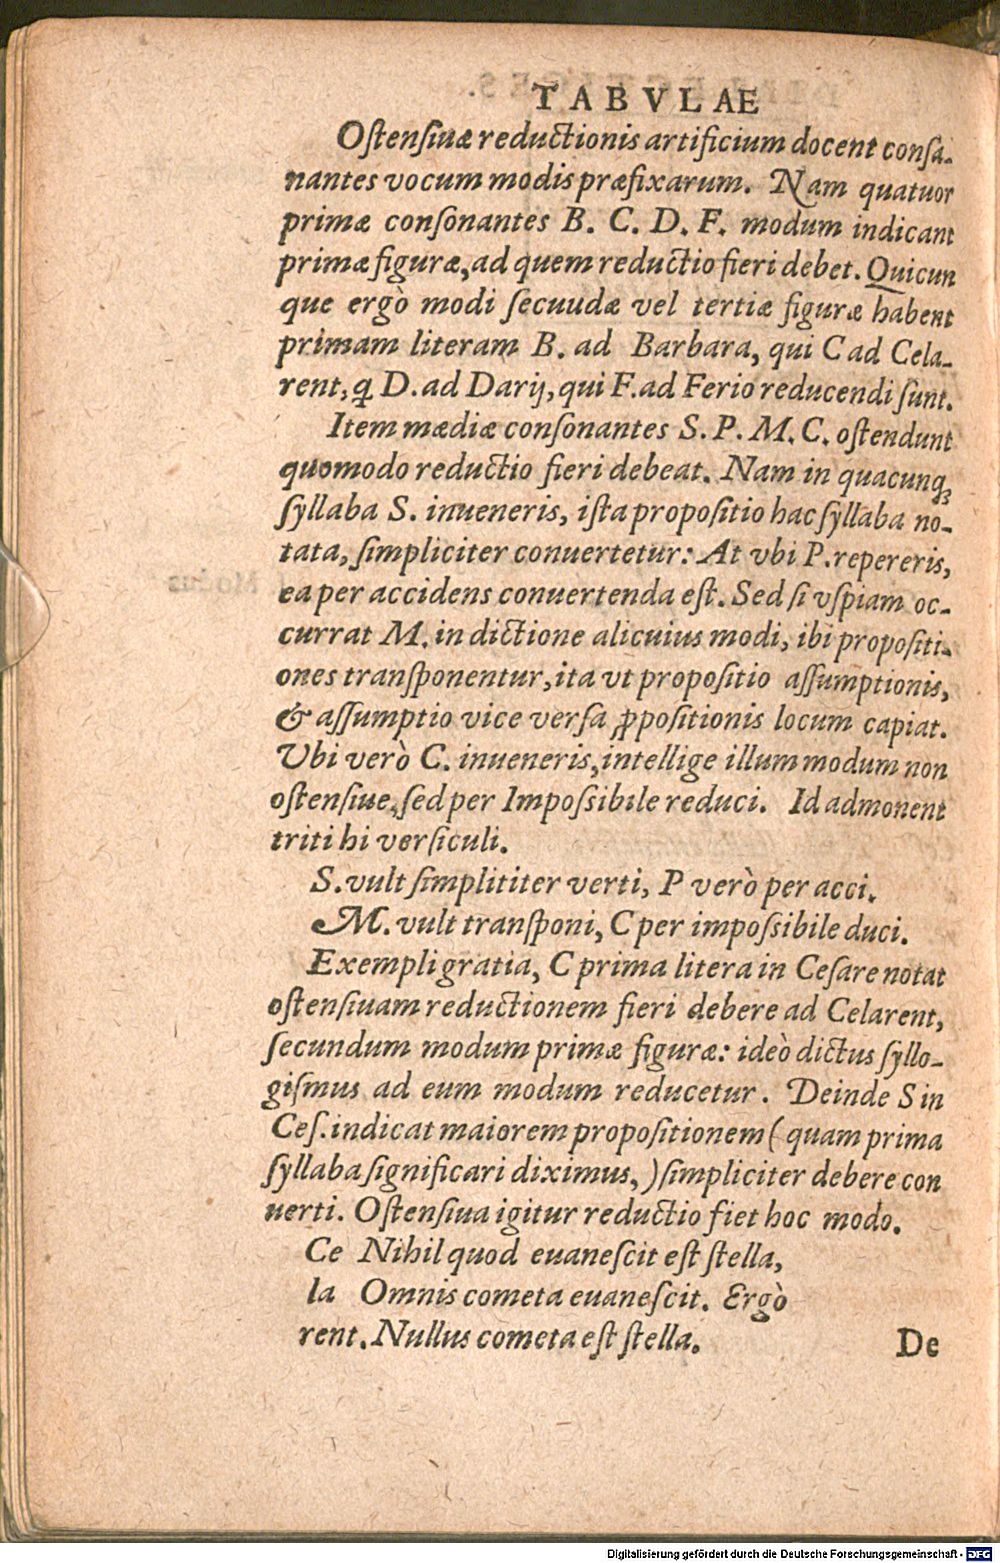 TABVLAE
Oſtenſiuæ reductionis artificium docent conſa-
nantes vocum modis præfixarum. Nam quatuor
primæ conſonantes B. C. D. F. modum indicant
primæ figuræ, ad quem reductio fieri debet. Quicun
que ergò modi ſecuudæ vel tertiæ figuræ habent
primam literam B. ad Barbara, qui C ad Cela-
rent, q D. ad Darij, qui F. ad Ferio reducendi ſunt.
Item mædiæ conſonantes S. P. M. C. oſtendunt
quomodo reductio fieri debeat. Nam in quacunqꝫ
ſyllaba S. inueneris, iſta propoſitio hac ſyllaba no-
tata, ſimpliciter conuertetur: At vbi P. repereris,
ea per accidens conuertenda eſt. Sed ſi vſpiam oc-
currat M. in dictione alicuius modi, ibi propoſiti-
ones tranſponentur, ita vt propoſitio aſſumptionis,
& aſſumptio vice verſa ꝓpoſitionis locum capiat.
Vbi verò C. inueneris, intellige illum modum non
oſtenſiue, ſed per Impoſsibile reduci. Id admonent
triti hi verſiculi.
S. vult ſimplititer verti, P verò per acci.
M. vult tranſponi, C per impoſsibile duci.
Exempli gratia, C prima litera in Ceſare notat
oſtenſiuam reductionem fieri debere ad Celarent,
ſecundum modum primæ figuræ: ideò dictus ſyllo-
giſmus ad eum modum reducetur. Deinde S in
Ceſ. indicat maiorem propoſitionem (quam prima
ſyllaba ſignificari diximus,) ſimpliciter debere con
uerti. Oſtenſiua igitur reductio fiet hoc modo.
Ce Nihil quod euaneſcit eſt ſtella,
la Omnis cometa euaneſcit. Ergò
rent. Nullus cometa eſt ſtella.
De
Digitalisierung gefördert durch die Deutsche Forschungsgemeinschaft - DFG